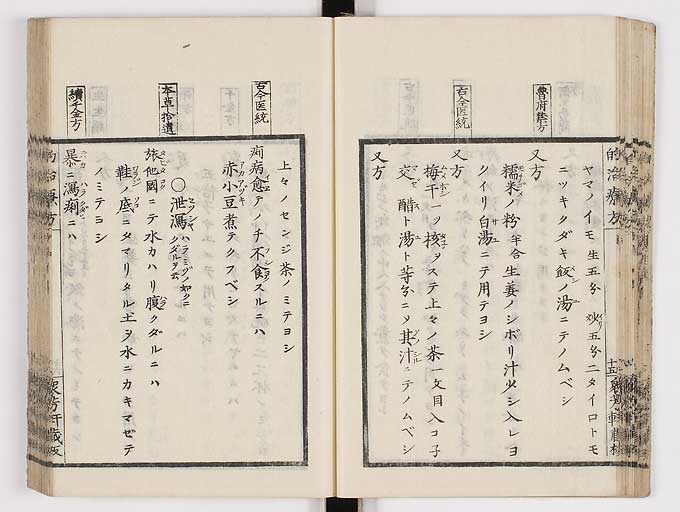 ヤマノイモ 生五分 炒五分 二タイロトモ
ニツキクダキ飯ノ湯ニテノムベシ
魯府禁方
又方
糯米ノ粉 半合 生姜ノシボリ汁少シ入レヨ
クイリ白湯ニテ用テヨシ
古今医統
又方
梅干一ツ核ヲステ上々ノ茶一文目入
交 酢ト湯ト等分ニシ其汁ニテノムベシ
又方
上々ノセンジ茶ノミテヨシ
古今医統
痢病愈テノチ不食スルニハ
赤小豆煮テクフベシ
○泄瀉 ハラミヅノ如クニクダルヲ云
本草拾遺
旅他國ニテ水カハリ腹クダルニハ
鞋ノ底ニタマリタル土ヲ水ニカキマゼテ
ノミテヨシ
續千金方
暴ニ瀉痢ニハ
的治療方